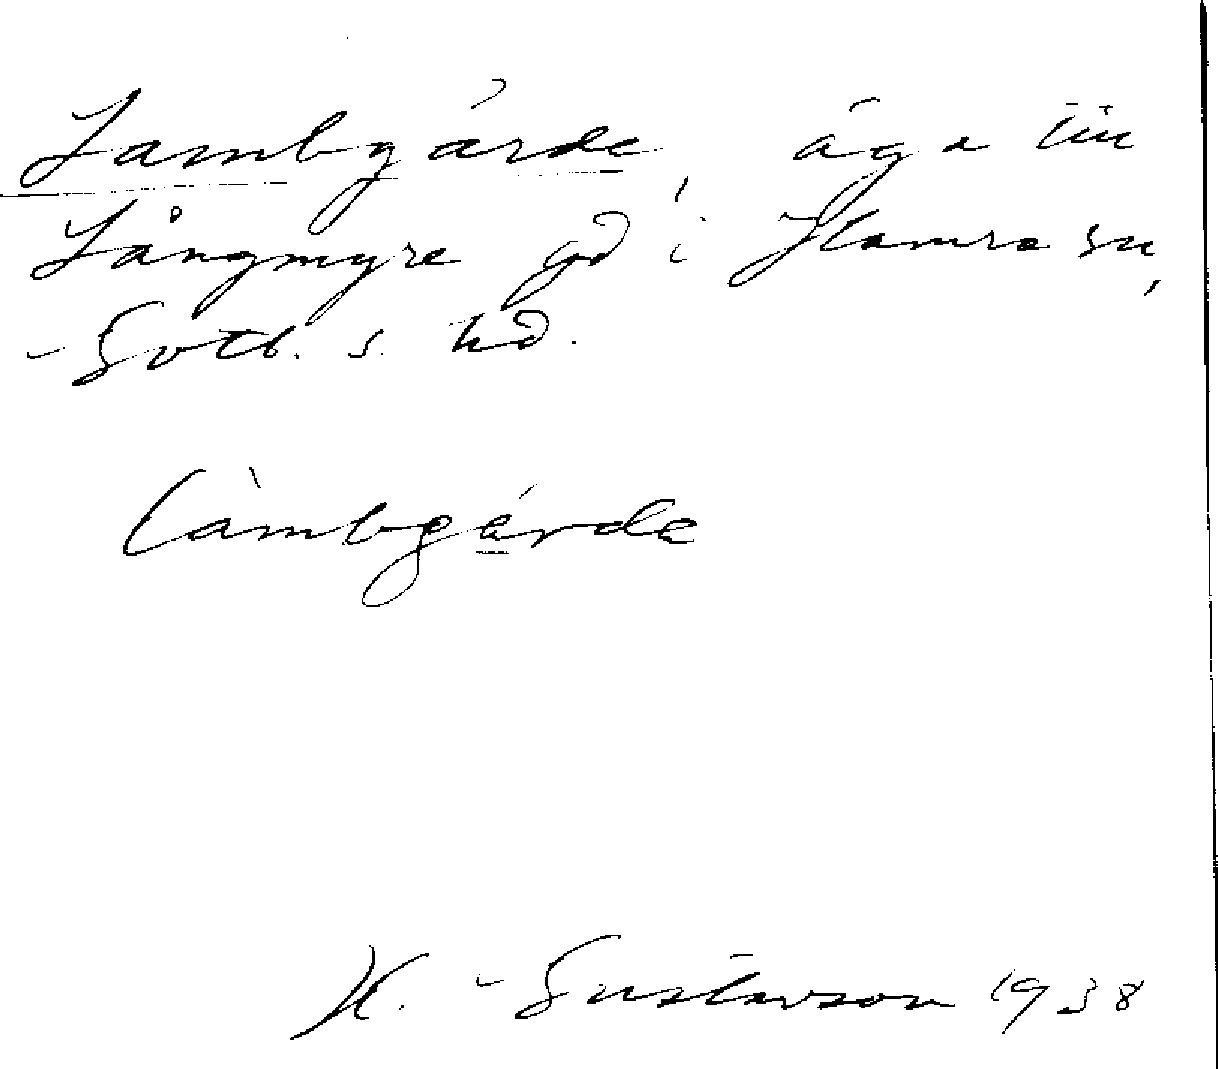 Lambgárde, äga till
Långmyre gd i Hamra sn,
Gotl. s. hd.
làmbgárde
H. Gustavson 1938